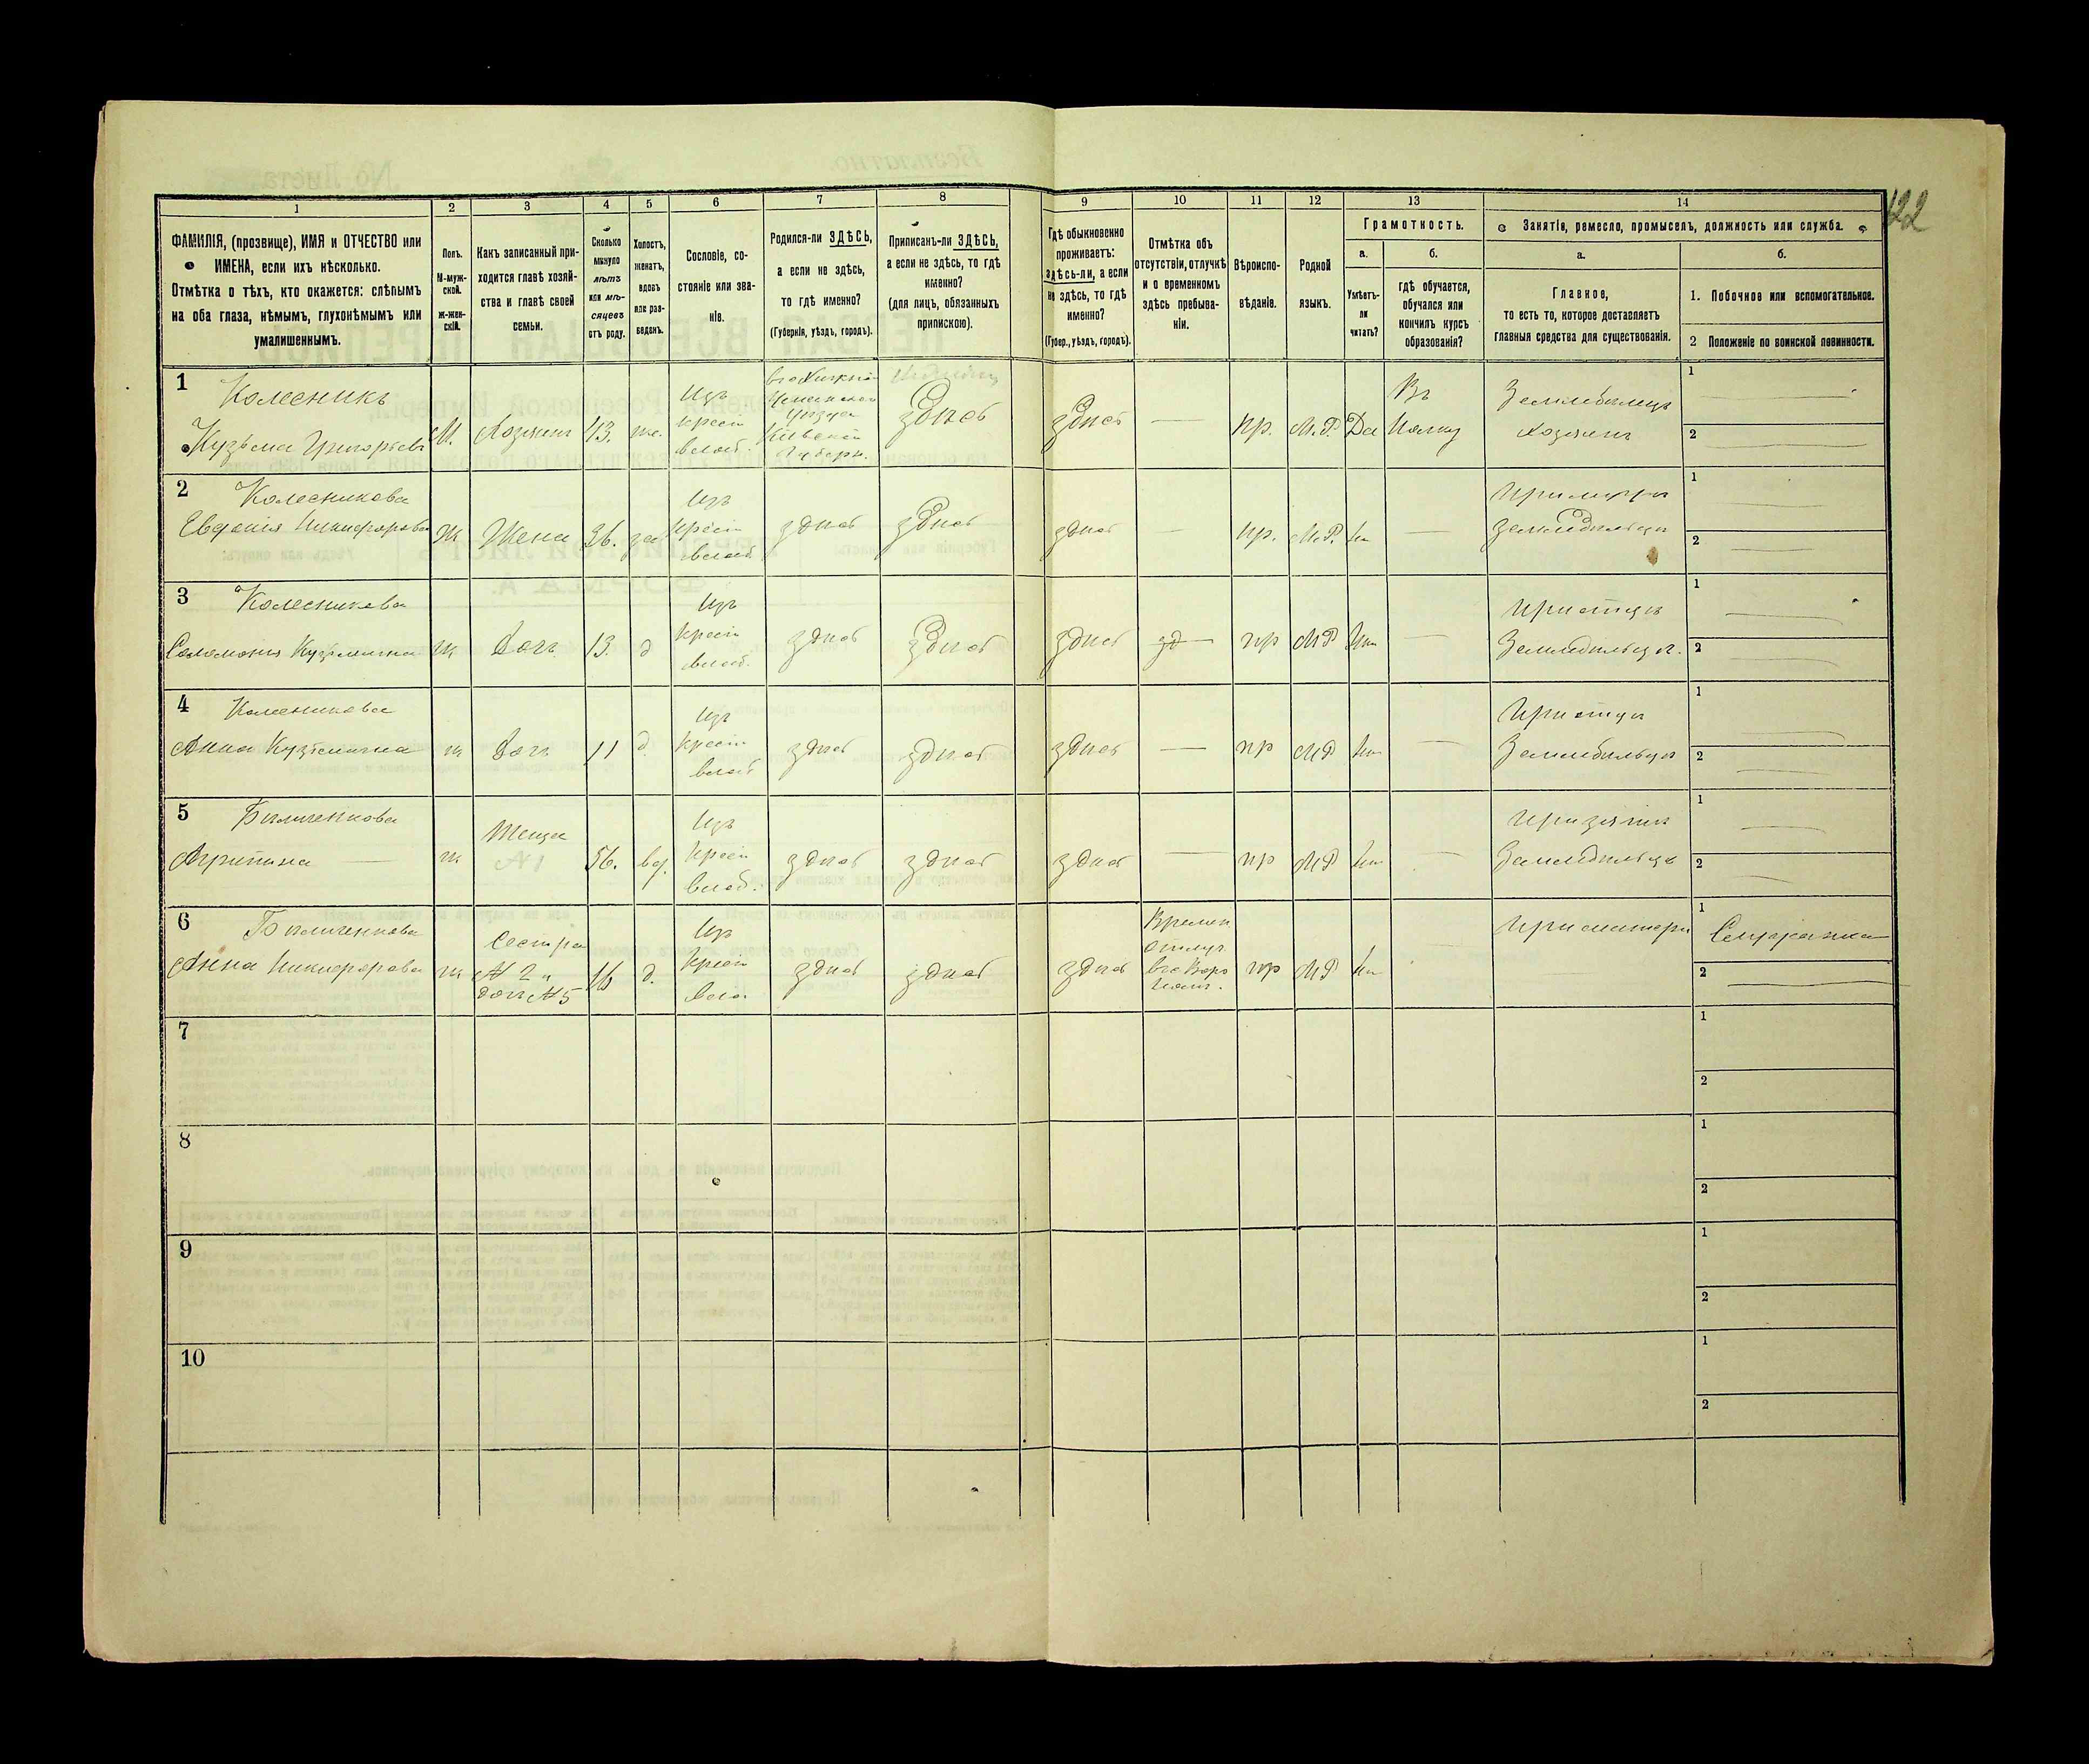 122
1 2 3 4 5 6 7 8 9 10 11 12 13 14
ФАМИЛІЯ, (прозвище), ИМЯ и ОТЧЕСТВО или
ИМЕНА, если ихъ нѣсколько.
Отмѣтка о тѣхъ, кто окажется: слѣпымъ
на оба глаза, нѣмымъ, глухонѣмымъ или
умалишеннымъ.
Полъ.
М-муж-
ской.
ж-жен-
скій.
Какъ записанный при-
ходится главѣ хозяй-
ства и главѣ своей
семьи.
Сколько
минуло
лѣтъ
или мѣ-
сяцевъ
отъ роду.
Холостъ,
женатъ,
вдовъ
или раз-
веденъ.
Сословіе, со-
стояніе или зва-
ніе.
Родился-ли ЗДѢСЬ,
а если не здѣсь,
то гдѣ именно?
(Губернія, уѣздъ, городъ).
Приписанъ-ли ЗДѢСЬ,
а если не здѣсь, то гдѣ
именно?
(для лицъ, обязанныхъ
припискою).
Гдѣ обыкновенно
проживаетъ:
здѣсь-ли, а если
не здѣсь, то гдѣ
именно?
(Губер., уѣздъ, городъ).
Отмѣтка объ
отсутствіи, отлучкѣ
и о временномъ
здѣсь пребыва-
ніи.
Вѣроиспо-
вѣданіе.
Родной
языкъ.
Грамотность.
а.
Умѣетъ-
ли
читать?
б.
гдѣ обучается,
обучался или
кончилъ курсъ
образованія?
Занятія, ремесло, промыселъ, должность или служба.
а.
Главное,
то есть то, которое доставляетъ
главныя средства для существованія.
б.
1. Побочное или вспомогательное.
2 Положеніе по воинской повинности.
1
Колесникъ
Кузьма Григорьевъ
М.
Хозяинъ
43.
же.
Изъ
крест
влад.
Уѣзда
Кіевской
Губерн.
здѣсь
здѣсь
—
пр.
М.Р.
Да
Въ
Земледѣлецъ
хозяинъ
1
2
2
Колесникова
Евдокія Никифорова
Ж
Жена
36.
за
Изъ
крест
влад
здѣсь
здѣсь
здѣсь
—
пр.
М.Р.
—
При мужѣ
земледѣльцѣ
1
2
3
Колесникова
Соломонія Кузьмична
ж
Дочь
13.
д
Изъ
крест
влад.
здѣсь
здѣсь
здѣсь
зд
пр
МР
—
При отцѣ
Земледѣльцѣ.
1
2
4
Колесникова
Анна Кузьмична
ж
Дочь
11
д.
Изъ
крест
влад
здѣсь
здѣсь
здѣсь
—
пр
МР
—
При отцѣ
Земледѣльцѣ
1
2
5
Биличенкова
Агрипина —
ж
Теща
№1
56.
вд.
Изъ
Крест
влад.
здѣсь
здѣсь
здѣсь
—
пр
МР
—
При зятѣ
Земледѣльцѣ
1
2
6
Биличенкова
Анна Никифорова
ж
Сестра
№ 2 и
дочь №5
16
д.
Изъ
крест
здѣсь
здѣсь
здѣсь
Времен
отлуч.
пр
МР
При матери
1
2
7
1
2
8
1
2
9
1
2
10
1
2